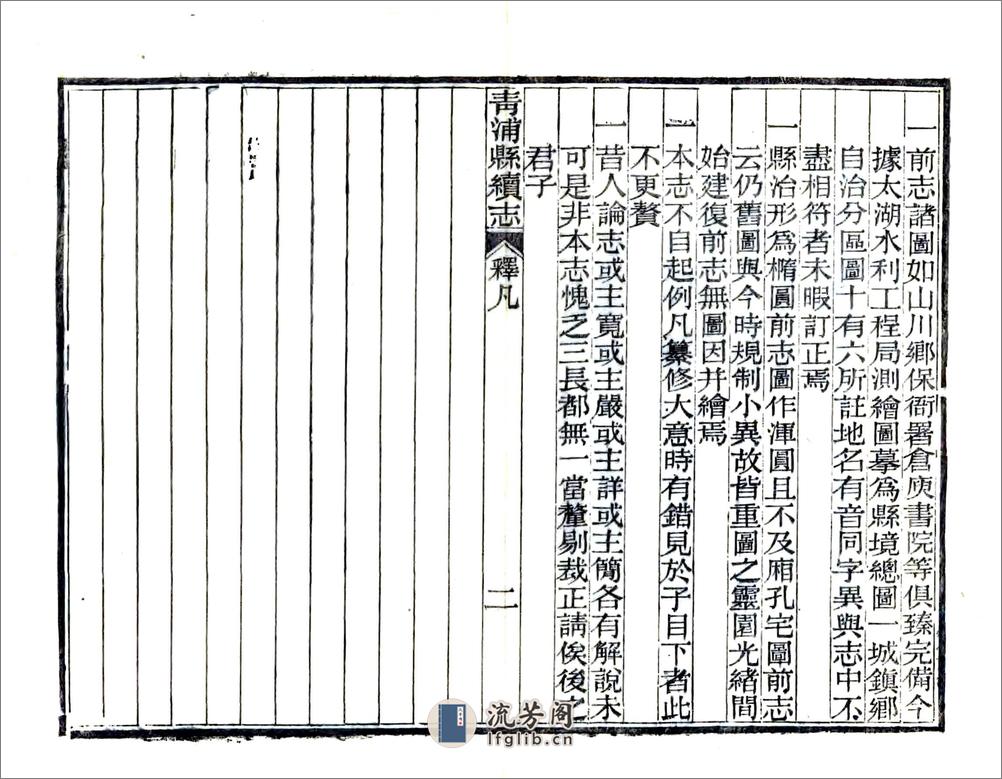 一前志諸圖如山川鄉保衙署倉庾書院等俱臻完備今
據太湖水利工程局測繪圖摹爲縣境總圖一城鎮鄉
自治分區圖十有六所註地名有音同字異與志中不
盡相符者未暇訂正焉
一縣治形爲橢圓前志圖作渾圓且不及廂孔宅圖前志
云仍舊圖與今時規制小異故皆重圖之靈園光緒間
始建復前志無圖因并繪焉
一本志不自起例凡纂修大意時有錯見於子目下者此
不更贅
一昔人論志或主寬或主嚴或主詳或主簡各有解說未
可是非本志愧乏三長都無一當釐剔裁正請俟後之
君子
青浦縣續志 釋凡 二
流芳阁
lfglib.cn